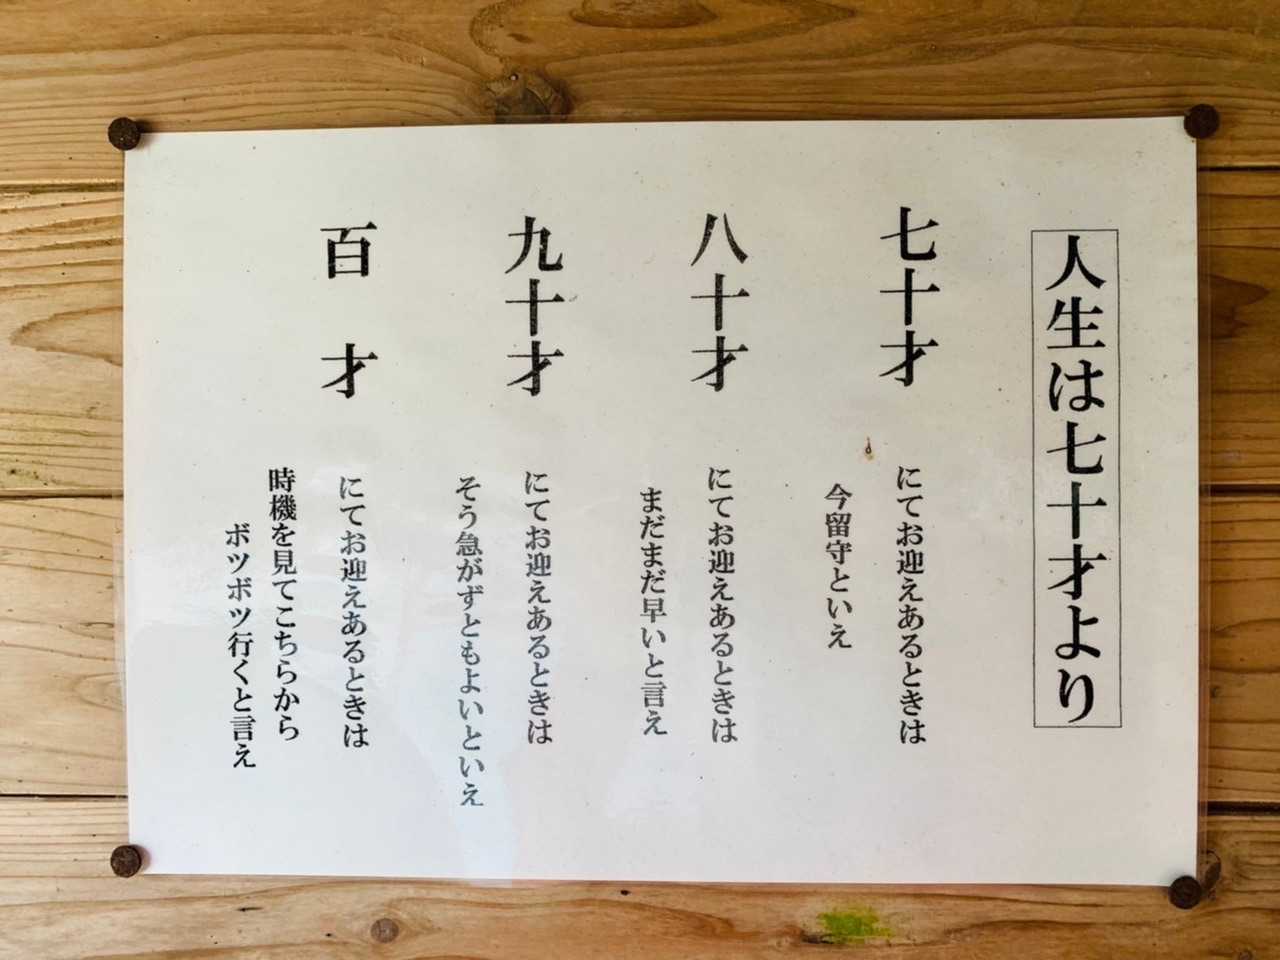 人生は七十才より
七十才
にてお迎えあるときは
今留守といえ
八十才
にてお迎えあるときは
まだまだ早いと言え
九十才
にてお迎えあるときは
そう急がずともよいといえ
百才
にてお迎えあるときは
時機を見てこちらから
ボツボツ行くと言え